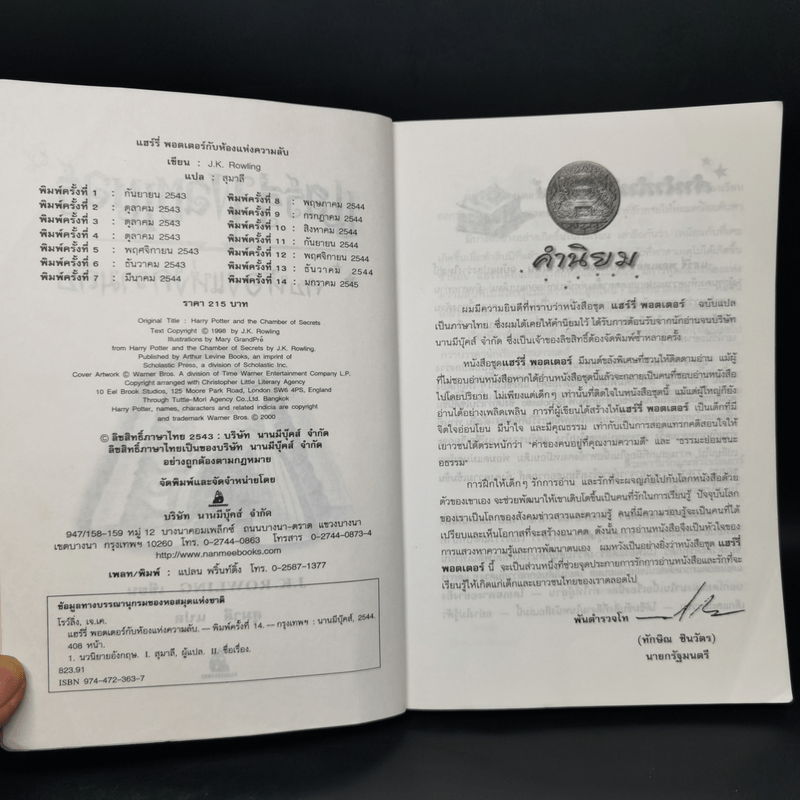 แฮร์รี่ พอตเตอร์กับห้องแห่งความลับ
เขียน : J.K. Rowling
แปล : สุมาลี
พิมพ์ครั้งที่ 1 : กันยายน 2543
พิมพ์ครั้งที่ 2 : ตุลาคม 2543
พิมพ์ครั้งที่ 3 : ตุลาคม 2543
พิมพ์ครั้งที่ 4 : ตุลาคม 2543
พิมพ์ครั้งที่ 5 : พฤศจิกายน 2543
พิมพ์ครั้งที่ 6 : ธันวาคม 2543
พิมพ์ครั้งที่ 7 : มีนาคม 2544
พิมพ์ครั้งที่ 8 : พฤษภาคม 2544
พิมพ์ครั้งที่ 9 : กรกฎาคม 2544
พิมพ์ครั้งที่ 10 : สิงหาคม 2544
พิมพ์ครั้งที่ 11 : กันยายน 2544
พิมพ์ครั้งที่ 12 : พฤศจิกายน 2544
พิมพ์ครั้งที่ 13 : ธันวาคม 2544
พิมพ์ครั้งที่ 14 : มกราคม 2545
ราคา 215 บาท
Original Title : Harry Potter and the Chamber of Secrets
Text Copyright © 1998 by J.K. Rowling
Illustrations by Mary GrandPré
from Harry Potter and the Chamber of Secrets by J.K. Rowling.
Published by Arthur Levine Books, an imprint of
Scholastic Press, a division of Scholastic Inc.
Cover Artwork © Warner Bros. A division of Time Warner Entertainment Company L.P.
Copyright arranged with Christopher Little Literary Agency
10 Eel Brook Studios, 125 Moore Park Road, London SW6 4PS, England
Through Tuttle-Mori Agency Co.Ltd. Bangkok
Harry Potter, names, characters and related indicia are copyright
and trademark Warner Bros. © 2000
© ลิขสิทธิ์ภาษาไทย 2543 : บริษัท นานมีบุ๊คส์ จำกัด
ลิขสิทธิ์ภาษาไทยเป็นของบริษัท นานมีบุ๊คส์ จำกัด
อย่างถูกต้องตามกฎหมาย
จัดพิมพ์และจัดจำหน่ายโดย
บริษัท นานมีบุ๊คส์ จำกัด
947/158-159 หมู่ 12 บางนาคอมเพล็กซ์ ถนนบางนา-ตราด แขวงบางนา
เขตบางนา กรุงเทพฯ 10260 โทร. 0-2744-0863 โทรสาร 0-2744-0873-4
http://www.nanmeebooks.com
เพลท/พิมพ์ : แปลน พริ้นท์ติ้ง โทร. 0-2587-1377
ข้อมูลทางบรรณานุกรมของหอสมุดแห่งชาติ
โรว์ลิ่ง, เจ.เค.
แฮร์รี่ พอตเตอร์กับห้องแห่งความลับ. — พิมพ์ครั้งที่ 14. — กรุงเทพฯ : นานมีบุ๊คส์, 2544.
408 หน้า.
1. นวนิยายอังกฤษ. I. สุมาลี, ผู้แปล. II. ชื่อเรื่อง.
823.91
ISBN 974-472-363-7
คำนิยม
ผมมีความยินดีที่ทราบว่าหนังสือชุด แฮร์รี่ พอตเตอร์ ฉบับแปล
เป็นภาษาไทย ซึ่งผมได้เคยให้คำนิยมไว้ ได้รับการต้อนรับจากนักอ่านจนบริษัท
นานมีบุ๊คส์ จำกัด ซึ่งเป็นเจ้าของลิขสิทธิ์ต้องจัดพิมพ์ซ้ำหลายครั้ง
หนังสือชุดแฮร์รี่ พอตเตอร์ มีมนต์ขลังพิเศษที่ชวนให้ติดตามอ่าน แม้ผู้
ที่ไม่ชอบอ่านหนังสือหากได้อ่านหนังสือชุดนี้แล้วจะกลายเป็นคนที่ชอบอ่านหนังสือ
ไปโดยปริยาย ไม่เพียงแต่เด็กๆ เท่านั้นที่ติดใจในหนังสือชุดนี้ แม้แต่ผู้ใหญ่ก็ยัง
อ่านได้อย่างเพลิดเพลิน การที่ผู้เขียนได้สร้างให้แฮร์รี่ พอตเตอร์ เป็นเด็กที่มี
จิตใจอ่อนโยน มีน้ำใจ และมีคุณธรรม เท่ากับเป็นการสอดแทรกคติสอนใจให้
เยาวชนได้ตระหนักว่า "ค่าของคนอยู่ที่คุณงามความดี" และ "ธรรมะย่อมชนะ
อธรรม"
การฝึกให้เด็กๆ รักการอ่าน และรักที่จะผจญภัยไปกับโลกหนังสือด้วย
ตัวของเขาเอง จะช่วยพัฒนาให้เขาเติบโตขึ้นเป็นคนที่รักในการเรียนรู้ ปัจจุบันโลก
ของเราเป็นโลกของสังคมข่าวสารและความรู้ คนที่มีความรอบรู้จะเป็นคนที่ได้
เปรียบและเห็นโอกาสที่จะสร้างอนาคต ดังนั้น การอ่านหนังสือจึงเป็นหัวใจของ
การแสวงหาความรู้และการพัฒนาตนเอง ผมหวังเป็นอย่างยิ่งว่าหนังสือชุด แฮร์รี่
พอตเตอร์ นี้ จะเป็นส่วนหนึ่งที่ช่วยจุดประกายการรักการอ่านหนังสือและรักที่จะ
เรียนรู้ให้เกิดแก่เด็กและเยาวชนไทยของเราตลอดไป
พันตำรวจโท
(ทักษิณ ชินวัตร)
นายกรัฐมนตรี